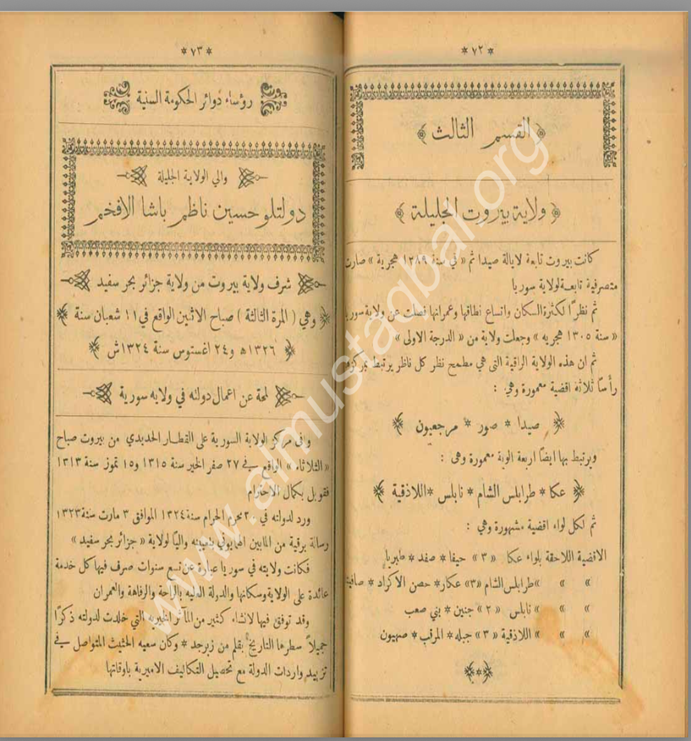 * ٧٢ *
﴿ القسم الثالث ﴾
﴿ ولاية بيروت الجليلة ﴾
كانت بيروت تابعة لايالة صيدا ثم « في سنة ١٢٨٩ هجرية » صارت
متصرفية تابعة لولاية سوريا
ثم نظرًا لكثرة السكان واتساع نطاقها وعمرانها فصلت عن ولاية سوريا
« سنة ١٣٠٥ هجريه » وجعلت ولاية من « الدرجة الاولى »
ثم ان هذه الولاية الراقية التي هي مطمح نظر كل ناظر يرتبط بمركزها
رأسًا ثلاثة اقضية معمورة وهي :
﴿ صيدا * صور * مرجعيون ﴾
ويرتبط بها ايضًا اربعة الوية معمورة وهى :
﴿ عكا * طرابلس الشام * نابلس * اللاذقية ﴾
ثم لكل لواء اقضية مشهورة وهي :
الاقضية اللاحقة بلواء عكا « ٣ » حيفا * صفد * طبريا
» » » طرابلس الشام «٣» عكار * حصن الاكراد * صافيتا
» » » نابلس « ٢ » جنين * بني صعب
» » » اللاذقية « ٣ » جبله * المرقب * صهيون
* ٧٣ *
رؤساء دوائر الحكومة السنية
والي الولاية الجليلة
دولتلو حسين ناظم باشا الافخم
شرف ولاية بيروت من ولاية جزائر بحر سفيد
﴿ وهي ( المرة الثالثة ) صباح الاثنين الواقع في ١١ شعبان سنة ﴾
﴿ ١٣٢٦ه و٢٤ اغستوس سنة ١٣٢٤ش ﴾
لمحة عن اعمال دولته في ولايه سورية
وافى مركز الولاية السورية على القطار الحديدي من بيروت صباح
« الثلاثاء » الواقع في ٢٧ صفر الخير سنة ١٣١٥ و١٥ تموز سنة ١٣١٣
فقوبل بكمال الاحترام
ورد لدولته في ٢٠ محرم الحرام سنة ١٣٢٤ الموافق ٣ مارت سنة ١٣٢٣
رسالة برقية من المابين الهمايوني بتعيينه واليًا لولاية « جزائر بحر سفيد »
فكانت ولايته في سوريا عبارة عن تسع سنوات صرف فيها كل خدمة
عائدة على الولاية وسكانها والدولة العليه بالراحة والرفاهة والعمران
وقد توفق فيها لانشاء كثير من المآثر الخيريه التي خلدت لدولته ذكرًا
جميلاً سطرها التاريخ بقلم من زبرجد * وكان سعيه الحثيث المتواصل في
تزييد واردات الدولة مع تحصيل التكاليف الاميرية باوقاتها
www.almustaqbar.org